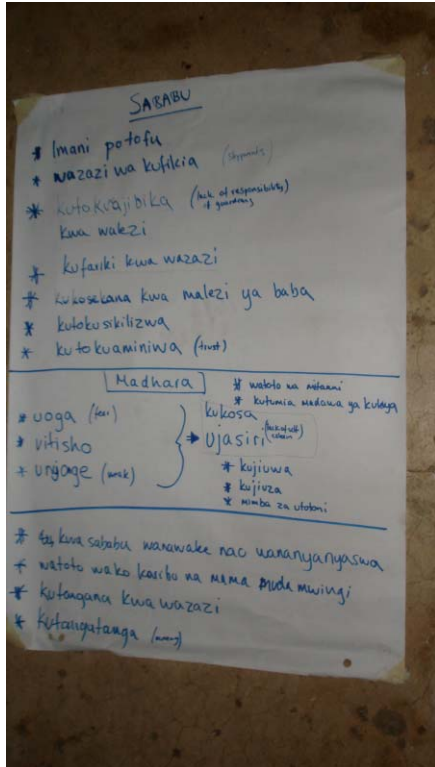 SABABU
* Imani potofu
* wazazi wa kufikia (stepparents)
* kutokuwajibika (lack of responsibility of guardians)
kwa walezi
* kufariki kwa wazazi
* kukosekana kwa malezi ya baba
* kutokusikilizwa
* kutokuaminiwa (trust)
Madhara
* uoga (fear)
* vitisho
* unyonge (weak)
* watoto wa mitaani
* kutumia madawa ya kulevya
kukosa
ujasiri (lack of self esteem)
* kujiuwa
* kujiuza
* mimba za utotoni
* kwa sababu wanawake nao wananyanyaswa
* watoto wako karibu na mama muda mwingi
* kutengana kwa wazazi
* kutangatanga